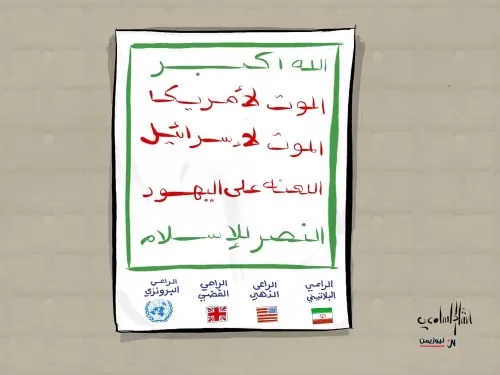 الله اكبر
الموت لأمريكا
الموت لإسرائيل
اللعنه على اليهود
النصر للإسلام
الراعي البلاتيني
الراعي الذهبي
الراعي الفضي
الراعي البرونزي
نيوزيمن